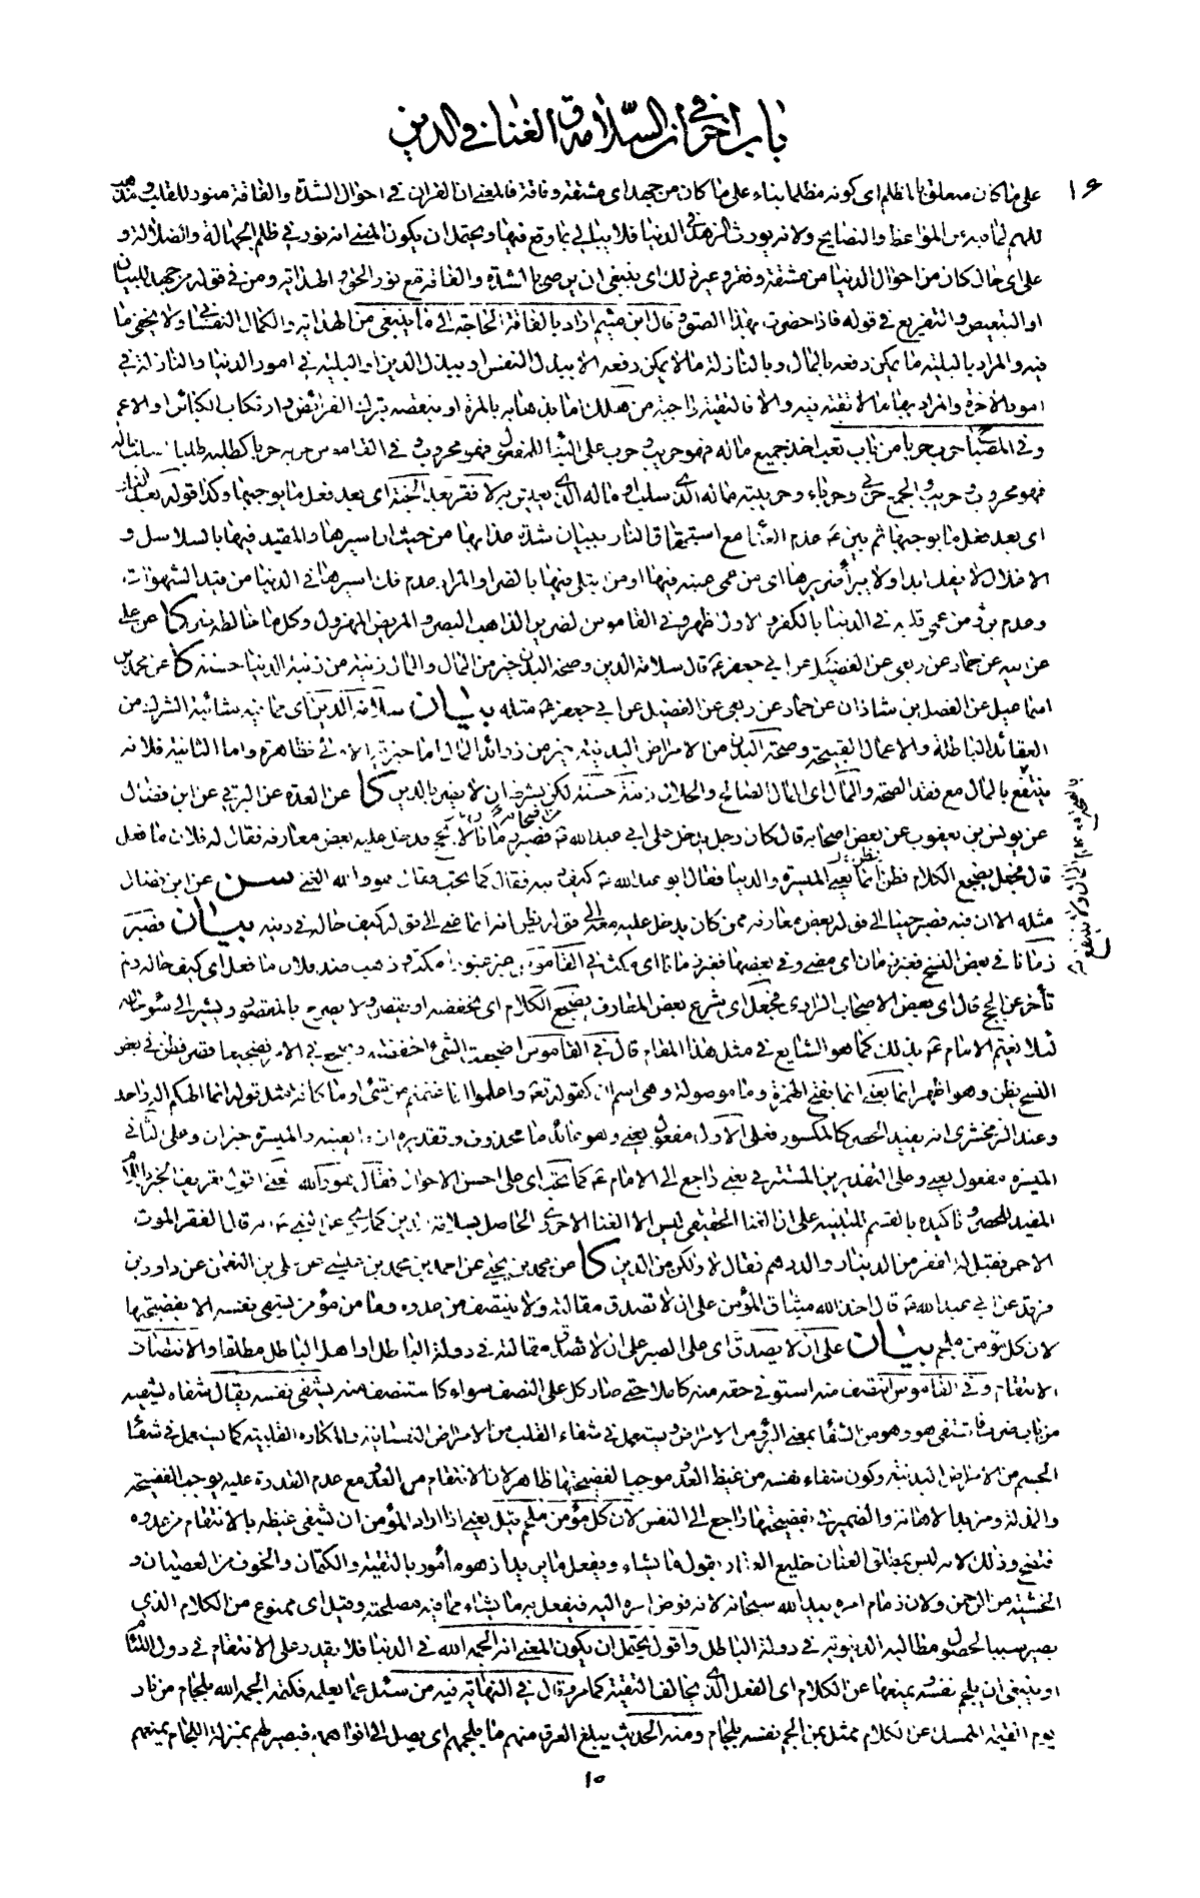 باب اخر في ان السلامة و الغنا في الدين
١٦
على ما كان متعلق بالمظلم اى كونه مظلما بناء على ما كان من جهد اى مشقة وفاقة فالمعنى ان القران في احوال الشدة والفاقة منور للقلب ومذهب
للهم لما فيه من المواعظ والنصايح ولانه يورث الزهد في الدنيا فلا يبالي بما وقع فيها ويحتمل ان يكون المعنى انه نور في ظلم الجهالة والضلالة و
على اى حال كان من احوال الدنيا من مشقة وفقر وغير ذلك اى ينبغى ان يرضى بالشدة والفاقة مع نور الحق والهداية ومن في قوله من جهد للبيان
او التبعيض والتفريع في قوله فاذا حضرت بهذا الصق وقال ابن ميثم اراد بالفاقة الحاجة الى ما ينبغى من الهداية والكمال النفسانى ولا يخفى ما
فيه والمراد بالبلية ما يمكن دفعه بالمال وبالنازلة ما لا يمكن دفعه الا ببذل النفس او ببذل الدين او البلية في امور الدنيا والنازلة في
امور الاخرة والمراد بها ما لا تقية فيه والا فالتقية واجبة من هلك اما بذهابه بالمرة او بنقصه بترك الفرائض وارتكاب الكبائر او الاعم
وفي المصباح حرب حربا من باب تعب اخذ جميع ماله فهو حريب وحرب على البناء للمفعول فهو محروب وفي القاموس حربه حربا كطلبه طلبا سلب ماله
فهو محروب وحريب والجمع حربى وحرباء وحريبته ماله الذى سلب او ماله الذى يعيش به لا فقر بعد الجنة اى بعد فعل ما يوجبها وكذا قوله بعد النار
اى بعد فعل ما يوجبها ثم بين ع عدم الغنا مع استحقاق النار ببيان شدة عذابها من حيث ان اسيرها والمقيد فيها بالسلاسل و
الاغلال لا يفك ابدا ولا يبرأ ضريرها اى من عمى عينه فيها او من ابتلى فيها بالضر او المراد عدم فك اسيرها في الدنيا من قيد الشهوات
وعدم برء من عمى قلبه في الدنيا بالكفر والاول اظهر وفي القاموس الضرير الذاهب البصر والمريض المهزول وكل ما خالطه ضر كا عن على
عن ابيه عن حماد عن ربعى عن الفضيل عن ابي جعفر ع قال سلامة الدين وصحة البدن خير من المال والمال زينة من زينة الدنيا حسنة كا عن محمد بن
اسماعيل عن الفضل بن شاذان عن حماد عن ربعى عن الفضيل عن ابي جعفر ع مثله بيان سلامة الدين اى مما فيه شائبة الشرك من
العقائد الباطلة والاعمال القبيحة وصحة البدن من الامراض البدنية خير من زوائد المال اما خيرية الاولى فظاهرة واما الثانية فلانه
ينتفع بالمال مع فقد الصحة والمال اى المال الصالح والحلال زينة حسنة لكن بشرط ان لا يضر بالدين كا عن العدة عن البرقي عن ابن فضال
عن يونس بن يعقوب عن بعض اصحابه قال كان رجل يدخل على ابي عبد الله ع من اصحابه فصبر زمانا لا يحج فدخل عليه بعض معارفه فقال له فلان ما فعل
قال فجعل يضجع الكلام فظن انما يعنى الميسرة والدنيا فقال ابو عبد الله ع كيف دينه فقال كما تحب فقال هو والله الغنى سن عن ابن فضال
مثله الا ان فيه فصبر حينا الى قوله بعض معارفه ممن كان يدخل عليه معه الى قوله يظن انه انما عنى الى قوله كيف حاله في دينه بيان فصبر
زمانا في بعض النسخ فغبر زمان اى مضى وفي بعضها فغبر زمانا اى مكث في القاموس غبر غبورا مكث وذهب ضد فلان ما فعل اى كيف حاله ولم
تأخر عن الحج قال اى بعض الاصحاب الراوى فجعل اى شرع بعض المعارف يضجع الكلام اى يخفضه او يقصر ولا يصرح بالمقصود ويشير الى سوء حاله
لئلا يغتم الامام ع بذلك كما هو الشايع في مثل هذا المقام قال في القاموس اضجعت الشئ اخفضته وضجع في الامر تضجيعا قصر فظن في بعض
النسخ يظن وهو اظهر انما يعنى انما بفتح الهمزة وما موصولة وهى اسم ان كقوله تعه واعلموا انما غنمتم من شئ او ما كافة مثل قوله انما الهكم اله واحد
وعند الزمخشرى انه يفيد الحصر كالمكسور فعلى الاول مفعول يعنى وهو عائد ما محذوف وتقديره ان ما يعنيه والميسرة خبر ان وعلى الثانى
الميسرة مفعول يعنى وعلى التقديرين المستتر في يعنى راجع الى الامام ع كما تحب اى على احسن الاحوال فقال هو والله الغنى اقول تعريف الخبر باللام
المفيد للحصر وتأكيده بالقسم للتنبيه على ان الغنا الحقيقى ليس الا الغنا الاخروى الحاصل بسلامة الدين كما روى عن النبى ص انه قال الفقر الموت
الاحمر فقيل له الفقر من الدينار والدرهم فقال لا ولكن من الدين كا عن محمد بن يحيى عن احمد بن محمد بن عيسى عن على بن النعمن عن داود بن
فرقد عن ابي عبد الله ع قال اخذ الله ميثاق المؤمن على ان لا تصدق مقالته ولا ينتصف من عدوه وما من مؤمن يشفى نفسه الا بفضيحتها
لان كل مؤمن ملجم بيان على ان لا يصدق اى على الصبر على ان لا تصدق مقالته في دولة الباطل او اهل الباطل مطلقا والانتصاف
الانتقام وفي القاموس انتصف منه استوفى حقه منه كاملا حتى صار كل على النصف سواء كاستنصف منه يشفى نفسه يقال شفاه يشفيه
من باب ضرب فاشتفى هو وهو من الشفا بمعنى البرء من الامراض ويستعمل في شفاء القلب من الامراض النفسانية والمكاره القلبية كما يستعمل في شفاء
الجسم من الامراض البدنية وكون شفاء نفسه من غيظ العدو موجبا لفضيحتها ظاهر لان الانتقام من العدو مع عدم القدرة عليه يوجب الفضيحة
والمذلة ومزيد الاهانة والضمير في بفضيحتها راجع الى النفس لان كل مؤمن ملجم قيل يعنى اذا اراد المؤمن ان يشفى غيظه بالانتقام من عدوه
افتضح وذلك لانه ليس بمطلق العنان خليع العذار يقول ما يشاء ويفعل ما يريد اذ هو مأمور بالتقية والكتمان والخوف من العصيان و
الخشية من الرحمن ولان زمام امره بيد الله سبحانه لانه فوض امره اليه فيفعل به ما يشاء مما فيه مصلحته وقيل اى ممنوع من الكلام الذي
يصير سببا لحصول مطالبه الدنيوية في دولة الباطل واقول يحتمل ان يكون المعنى انه الجمه الله في الدنيا فلا يقدر على الانتقام في دول اللئام
او ينبغى ان يلجم نفسه ويمنعها عن الكلام اى الفعل الذى يخالف التقية كما مر وقال في النهاية فيه من سئل عما يعلمه فكتمه الجمه الله بلجام من نار
يوم القيمة الممسك عن الكلام ممثل بمن الجم نفسه بلجام ومنه الحديث يبلغ العرق منهم ما يلجمهم اى يصل الى افواههم فيصير لهم بمنزلة اللجام يمنعهم
١٥